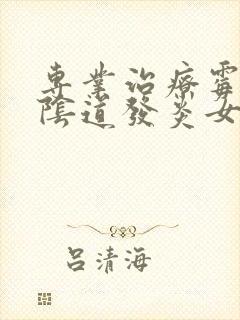 專業治療霉
陰道發炎女
呂清海